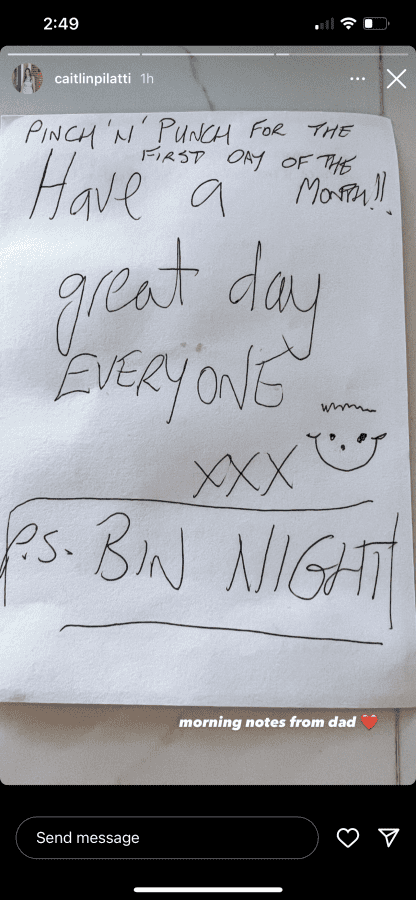 2:49
caitlinpilatti 1h
PINCH 'N' PUNCH FOR THE
FIRST DAY OF THE
Have a MONTH!!
great day
EVERYONE
XXX
P.S. BIN NIGHT
morning notes from dad ❤️
Send message